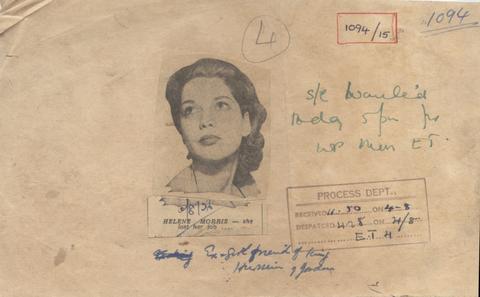 4
1094/15
1094
s/c Wanted
Today 5pm for
ET.
HELENE MORRIS — she
lost her job ....
PROCESS DEPT.,
RECEIVED 11.50 ON 4-8
DESPATCHED ON 4/8
E.T.H
Ex-girl friend of King
Hussein of Jordan